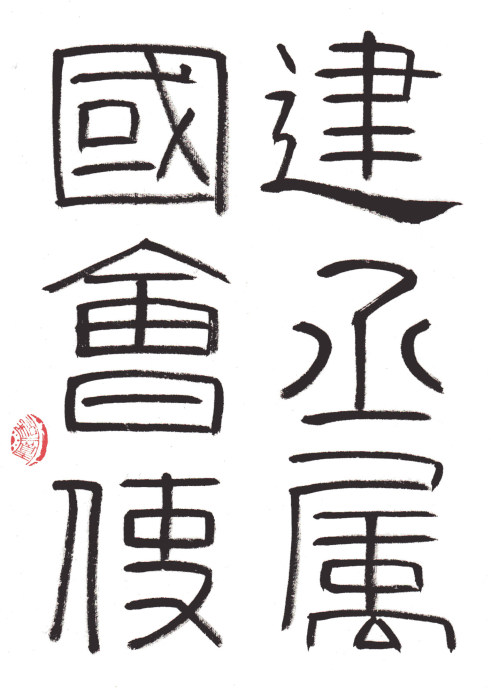 建丞属
國會使